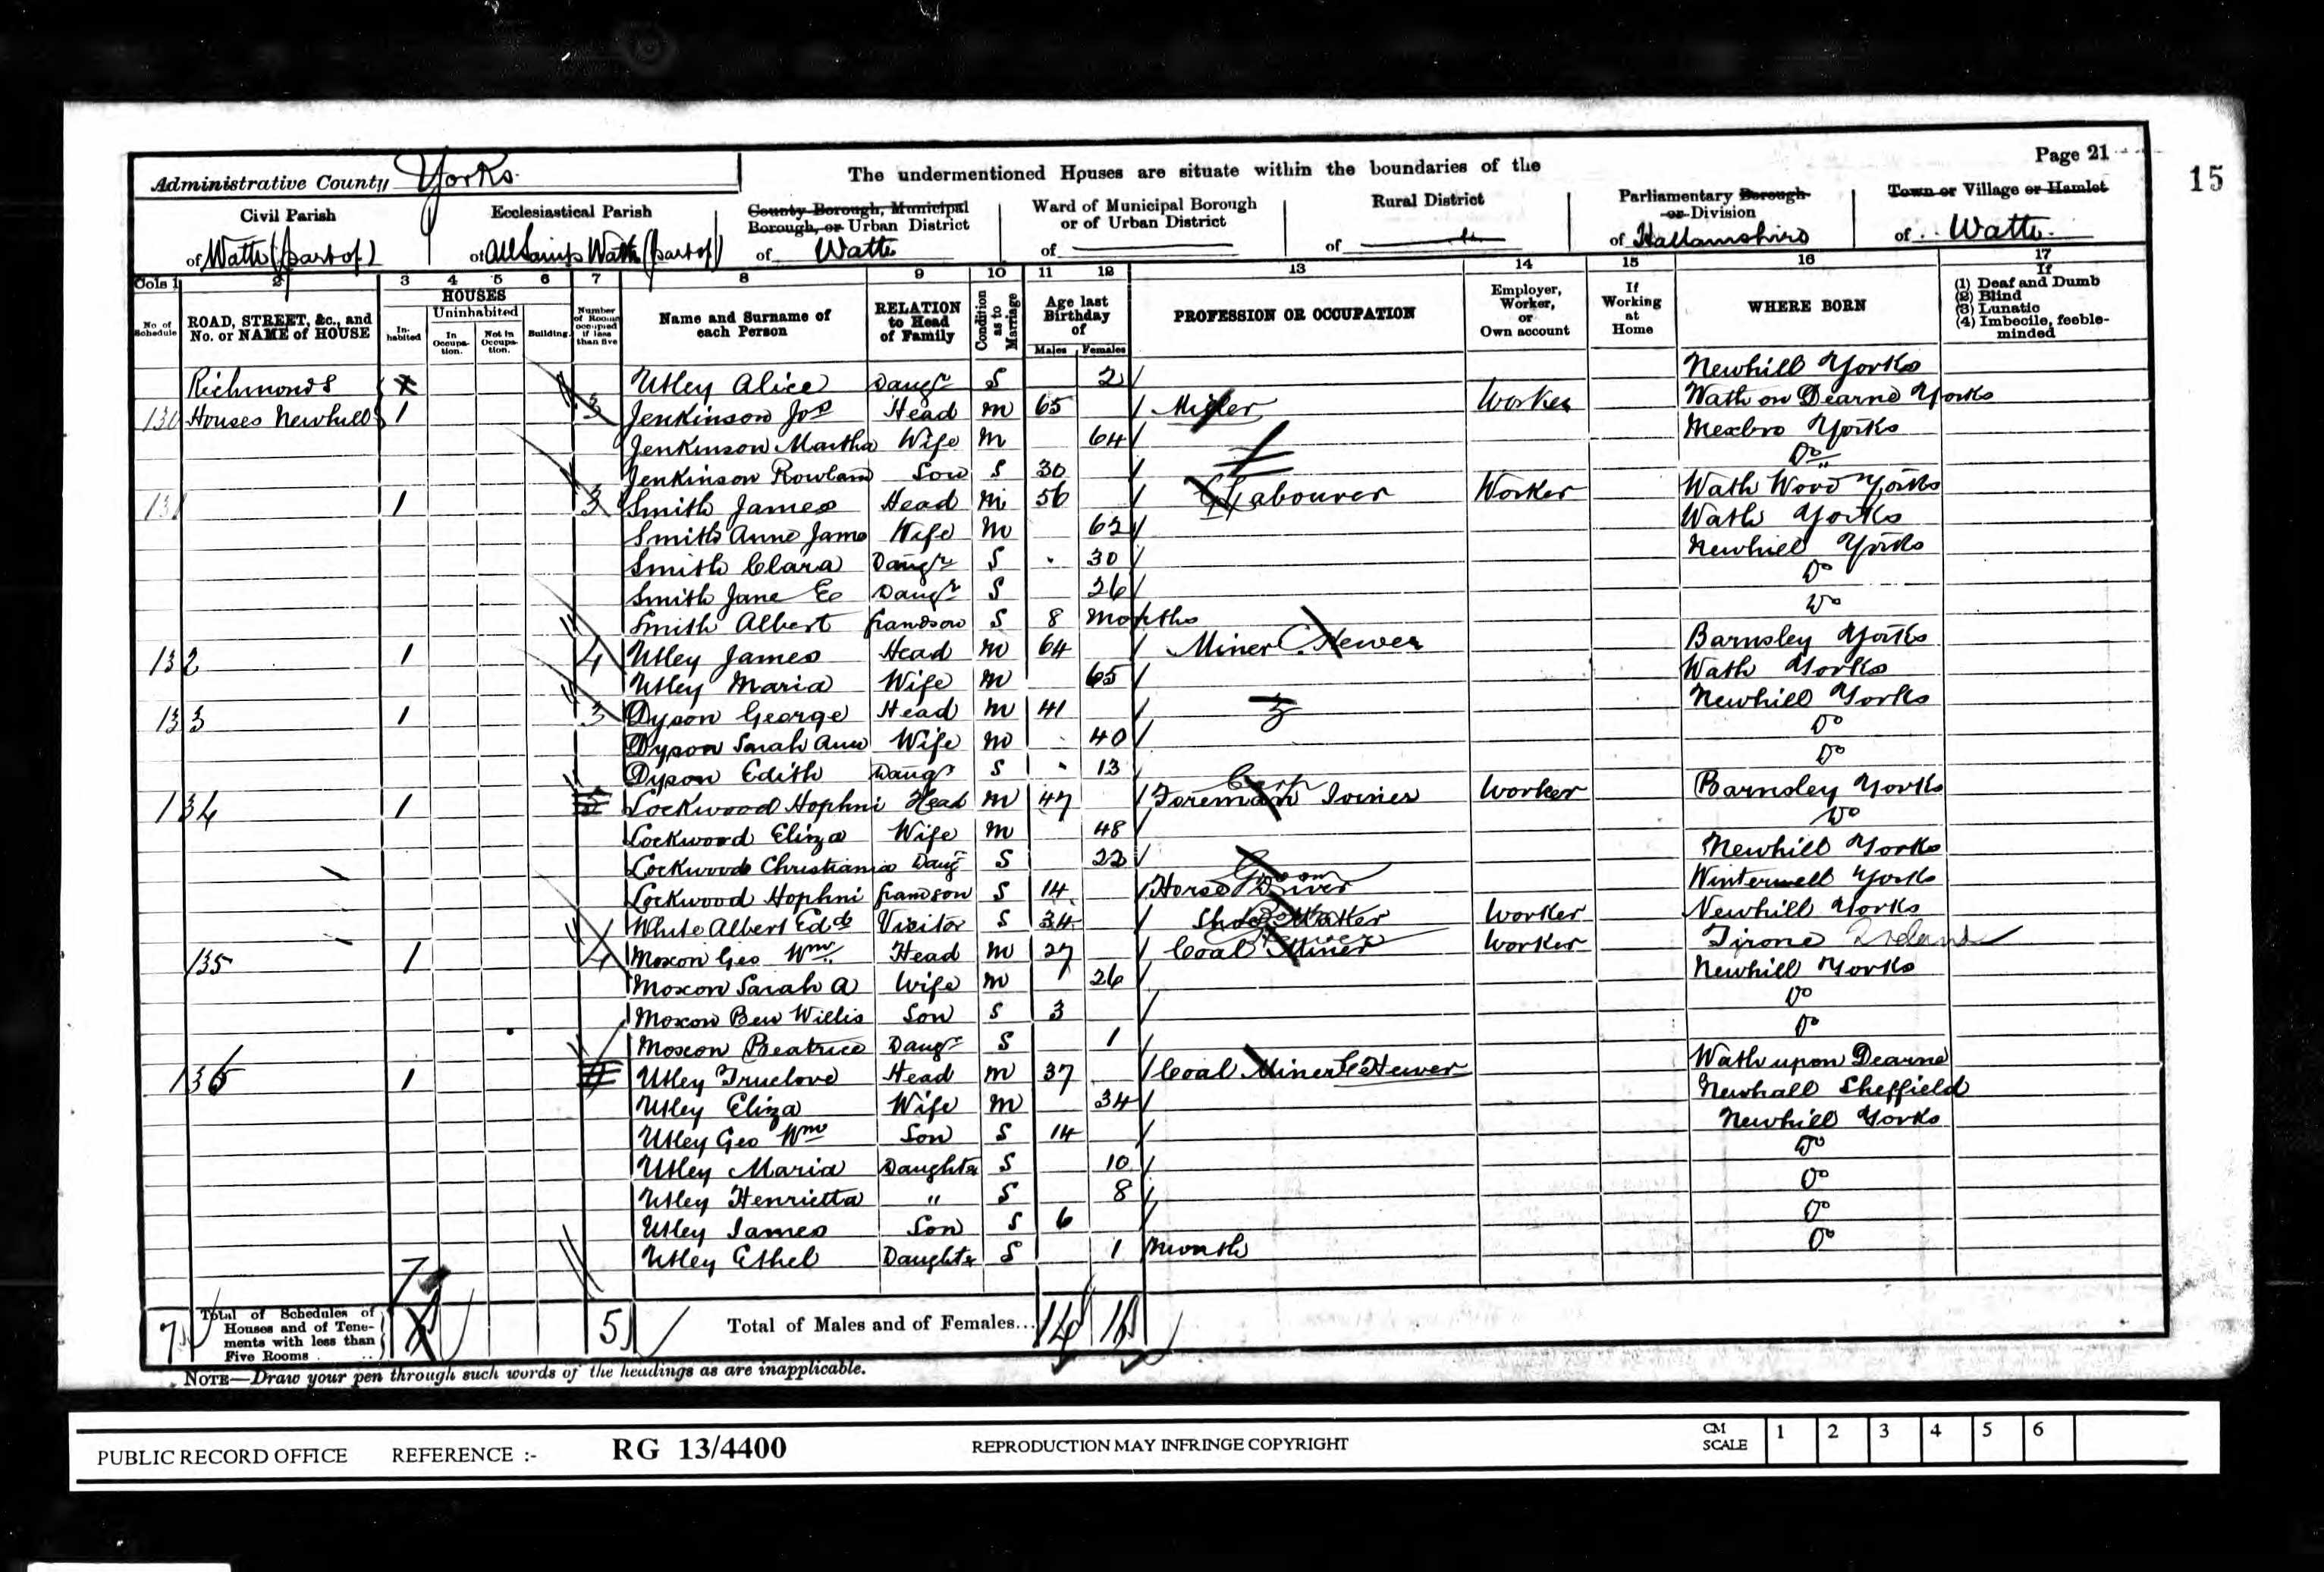 Page 21
15
Administrative County Yorks.
The undermentioned Houses are situate within the boundaries of the
Civil Parish of Wath (part of)
Ecclesiastical Parish of All Saints Wath (part of)
County Borough, Municipal Borough, or Urban District of Wath
Ward of Municipal Borough or of Urban District of
Rural District of
Parliamentary Borough or Division of Hallamshire
Town or Village or Hamlet of Wath
Cols 1 2 3 4 5 6 7 8 9 10 11 12 13 14 15 16 17
No. of Schedule
ROAD, STREET, &c., and No. or NAME of HOUSE
HOUSES
Inhabited
Uninhabited
In Occupation.
Not in Occupation.
Building.
Number of Rooms occupied if less than five
Name and Surname of each Person
RELATION to Head of Family
Condition as to Marriage
Age last Birthday of
Males Females
PROFESSION OR OCCUPATION
Employer, Worker, or Own account
If Working at Home
WHERE BORN
If
(1) Deaf and Dumb
(2) Blind
(3) Lunatic
(4) Imbecile, feeble-minded
Richmonds Utley Alice Daugr S 2 Newhill Yorks
130 Houses Newhill 1 3 Jenkinson Jos Head M 65 Worker Wath on Dearne Yorks
Jenkinson Martha Wife M 64 Mexbro Yorks
Jenkinson Rowland Son S 30 Do
131 1 3 Smith James Head M 56 Labourer Worker Wath Wood Yorks
Smith Anne Jane Wife M 62 Wath Yorks
Smith Clara Daugr S 30 Newhill Yorks
Smith Jane E Daugr S 26 Do
Smith Albert Grandson S 8 Months Do
132 1 4 Utley James Head M 64 Miner Hewer Barnsley Yorks
Utley Maria Wife M 65 Wath Yorks
133 1 3 Dyson George Head M 41 Newhill Yorks
Dyson Sarah Ann Wife M 40 Do
Dyson Edith Daugr S 13 Do
134 1 Lockwood Hophni Head M 47 Foreman Joiner Carp Worker Barnsley Yorks
Lockwood Eliza Wife M 48 Do
Lockwood Christiania Daugr S 22 Newhill Yorks
Lockwood Hophni Grandson S 14 Horse Driver Groom Winterwell Yorks
White Albert Edd Visitor S 34 Worker Newhill Yorks
135 1 4 Moxon Geo Wm Head M 27 Coal Miner Hewer Worker Tirone Ireland
Moxon Sarah A Wife M 26 Newhill Yorks
Moxon Ben Willis Son S 3 Do
Moxon Beatrice Daugr S 1 Do
136 1 4 Utley Truelove Head M 37 Coal Miner Hewer Wath upon Dearne
Utley Eliza Wife M 34 Newhall Sheffield
Utley Geo Wm Son S 14 Newhill Yorks
Utley Maria Daughter S 10 Do
Utley Henrietta " S 8 Do
Utley James Son S 6 Do
Utley Ethel Daughter S 1 Month Do
7
7 Total of Schedules of Houses and of Tenements with less than Five Rooms 5 Total of Males and of Females... 14 16
NOTE—Draw your pen through such words of the headings as are inapplicable.
PUBLIC RECORD OFFICE REFERENCE :- RG 13/4400 REPRODUCTION MAY INFRINGE COPYRIGHT CM SCALE 1 2 3 4 5 6